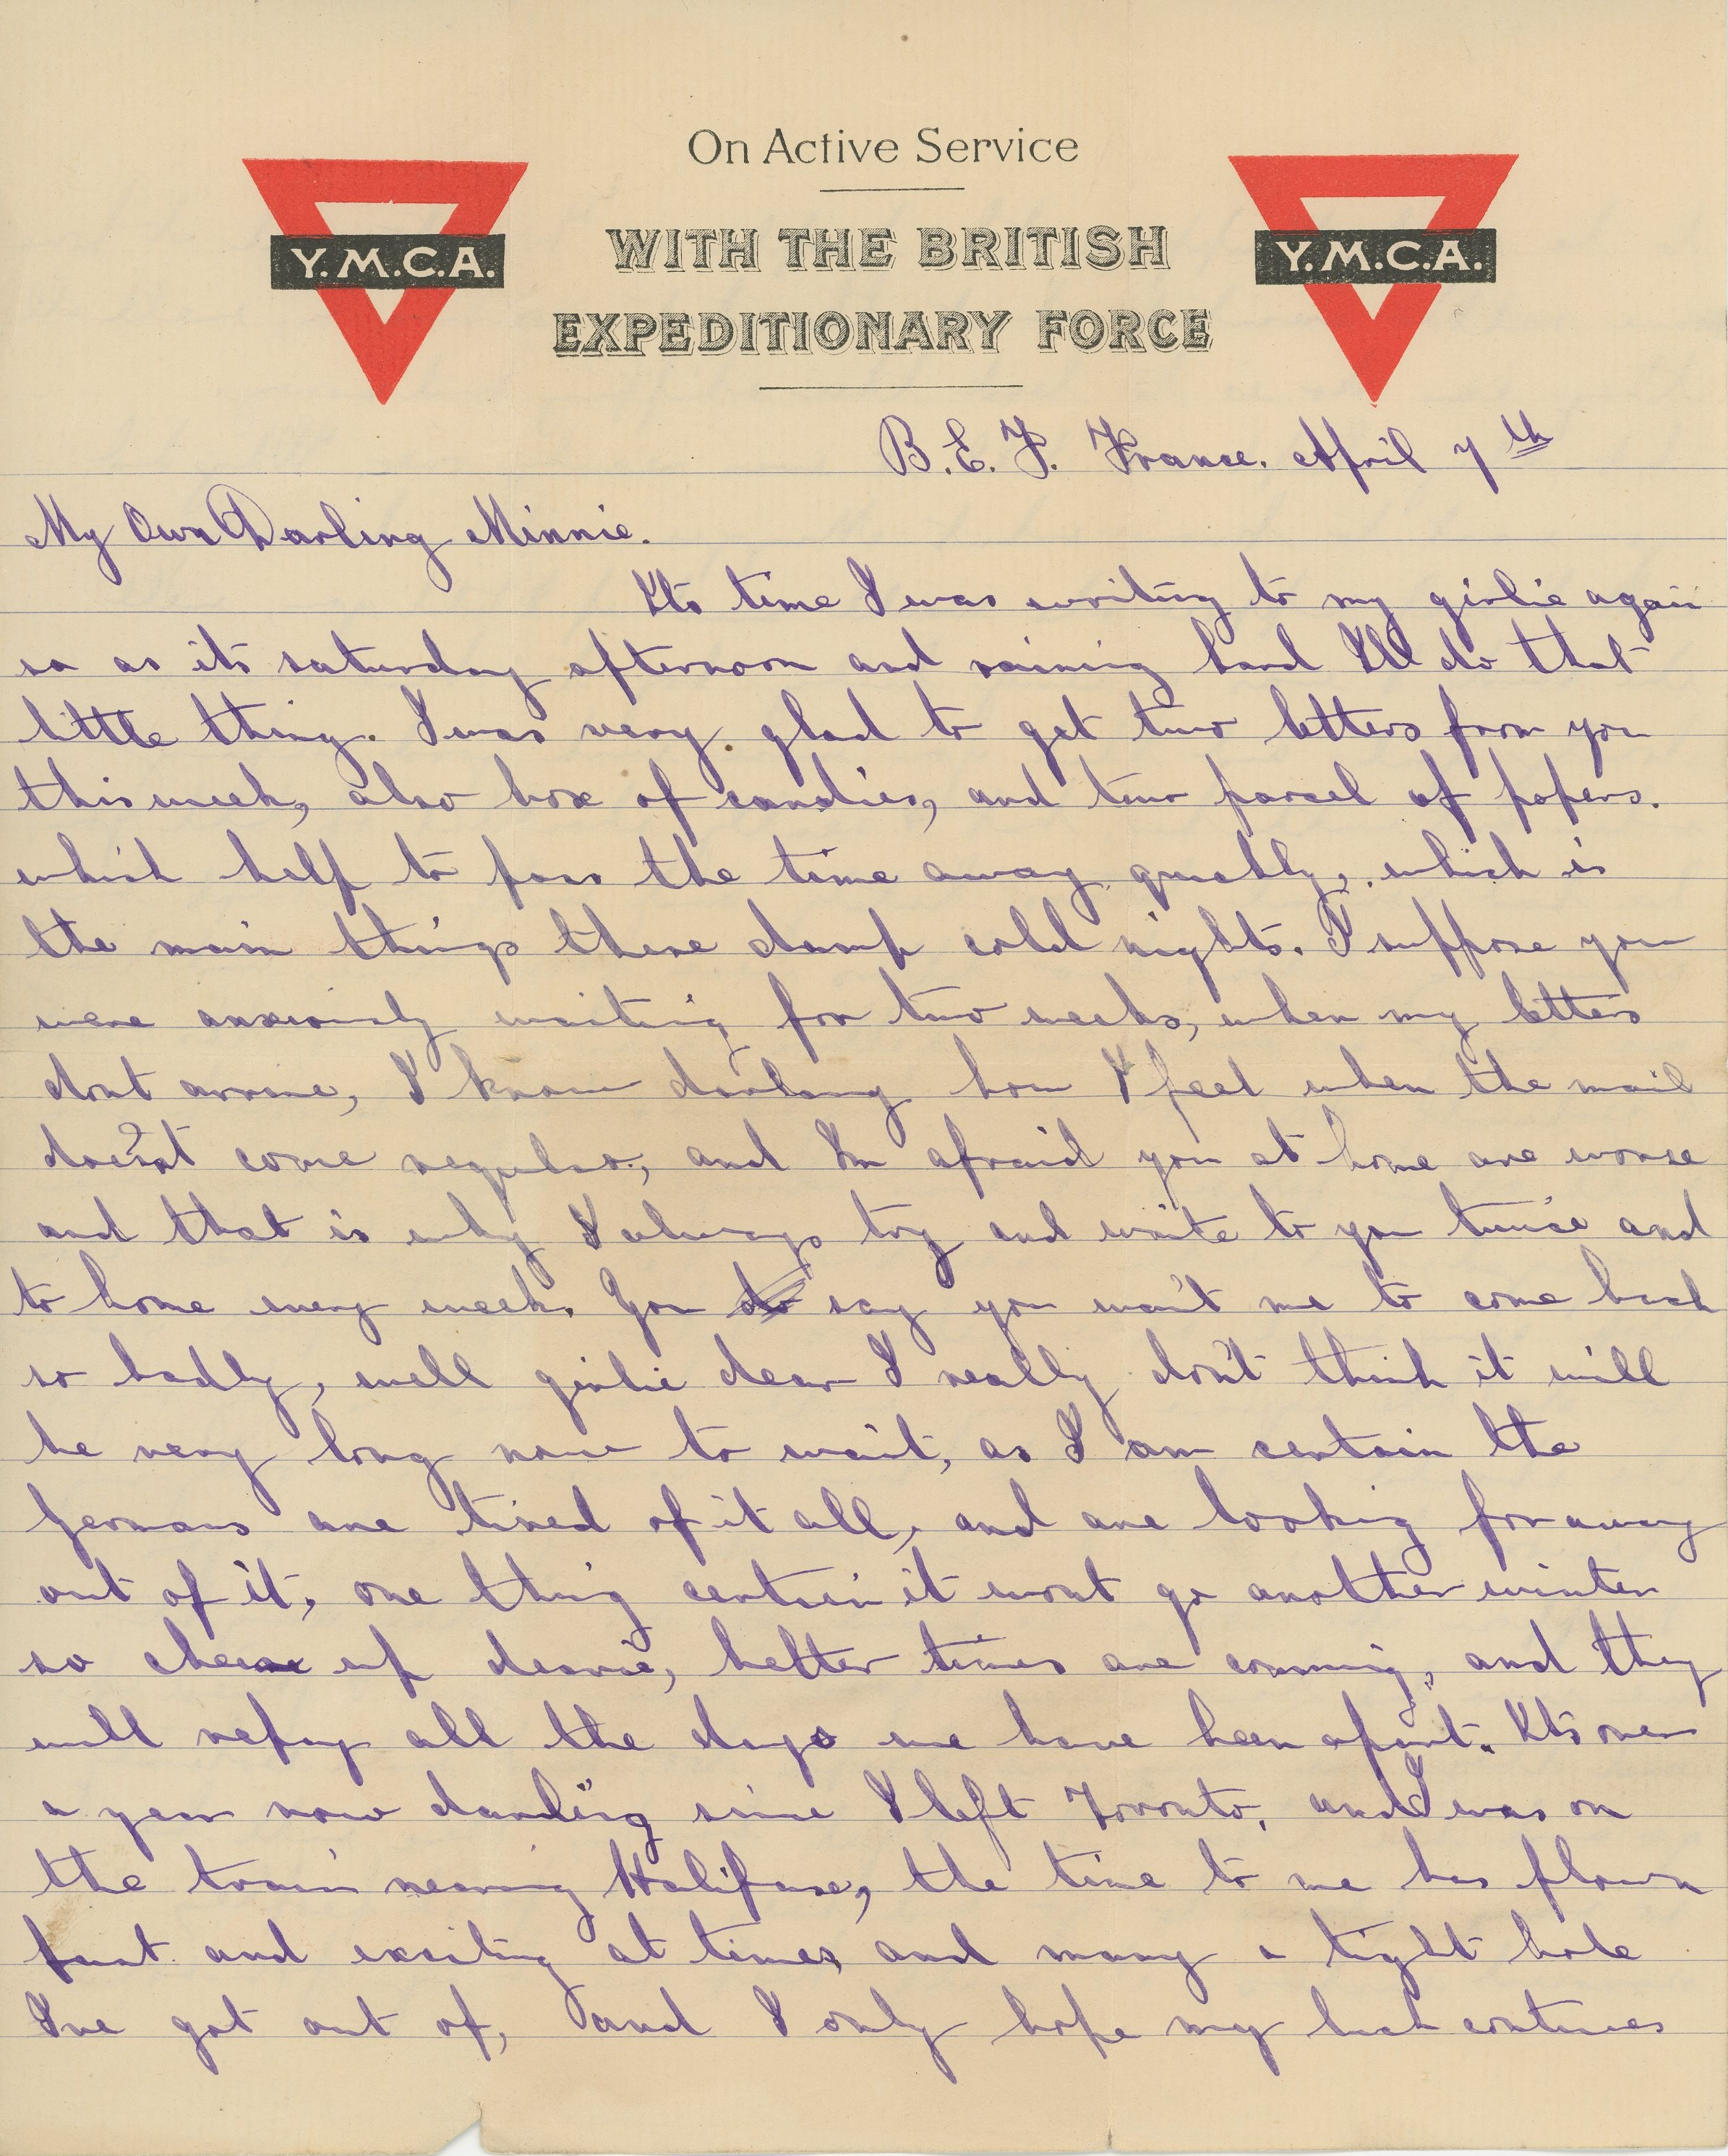 On Active Service
Y.M.C.A.
WITH THE BRITISH
Y.M.C.A.
EXPEDITIONARY FORCE
B.E.F. France. April 7th
My Own Darling Minnie.
Its time I was writing to my girlie again
so as its saturday afternoon and raining hard I'll do that
little thing. I was very glad to get two letters from you
this week, also box of candies, and two parcel of papers.
which help to pass the time away quickly, which is
the main things these damp cold nights. I suppose you
were anxiously waiting for two weeks, when my letters
dont arrive, I know darling how I feel when the mail
doesn't come regular, and Im afraid you at home are worse
and that is why I always try and write to you twice and
to home every week. You do say you want me to come back
so badly, well girlie dear I really don't think it will
be very long now to wait, as I am certain the
Germans are tired of it all, and are looking for away
out of it, one thing certain it wont go another winter
so cheer up dearie, better times are comming, and they
will repay all the days we have been apart. Its over
a year now darling since I left Toronto, and I was on
the train nearing Halifax, the time to me has flown
fast and exciting at times, and many a tight hole
I've got out of, and I only hope my luck continues